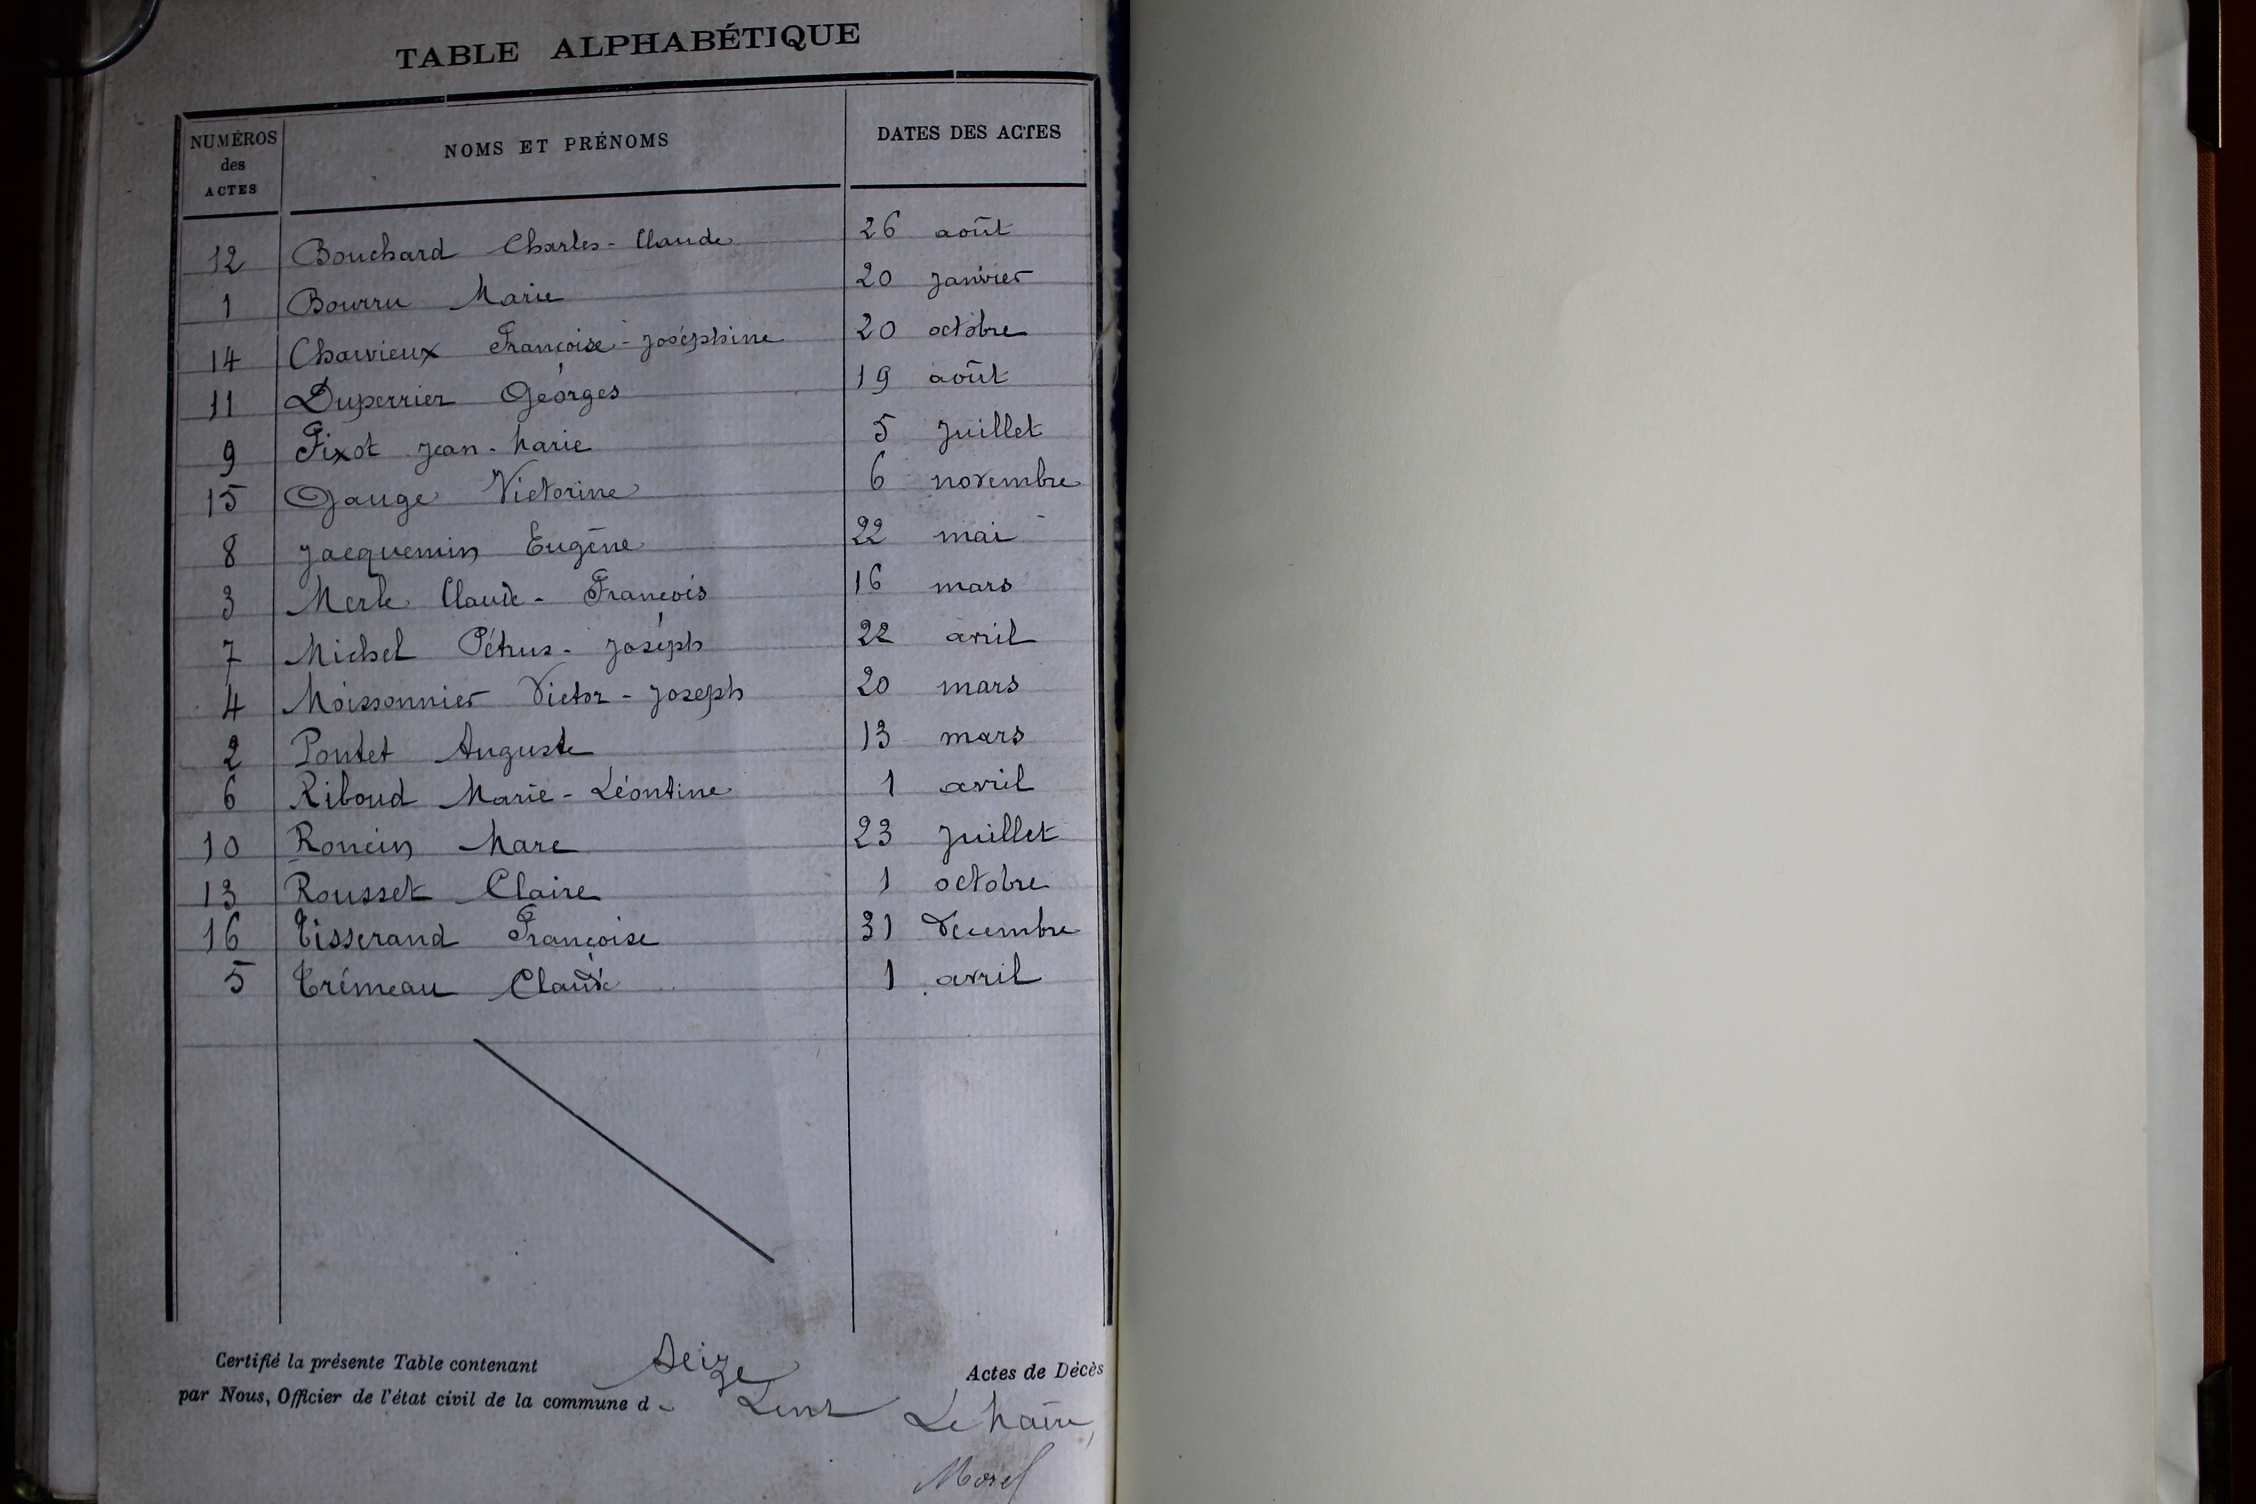 TABLE ALPHABÉTIQUE
NUMÉROS des ACTES NOMS ET PRÉNOMS DATES DES ACTES
12 Bouchard Charles-Claude 26 août
1 Bourru Marie 20 janvier
14 Charvieux Françoise-Joséphine 20 octobre
11 Duperrier Georges 19 août
9 Fixot Jean-Marie 5 juillet
15 Gauge Victorine 6 novembre
8 Jacquemin Eugène 22 mai
3 Merle Claude-François 16 mars
7 Michel Pétrus-Joseph 22 avril
4 Moissonnier Victor-Joseph 20 mars
2 Pontet Auguste 13 mars
6 Riboud Marie-Léontine 1 avril
10 Roncin Marc 23 juillet
13 Rousset Claire 1 octobre
16 Tisserand Françoise 31 décembre
5 Trémeau Claude 1 avril
Certifié la présente Table contenant Seize Actes de Décès
par Nous, Officier de l'état civil de la commune d Le Maire,
Morel